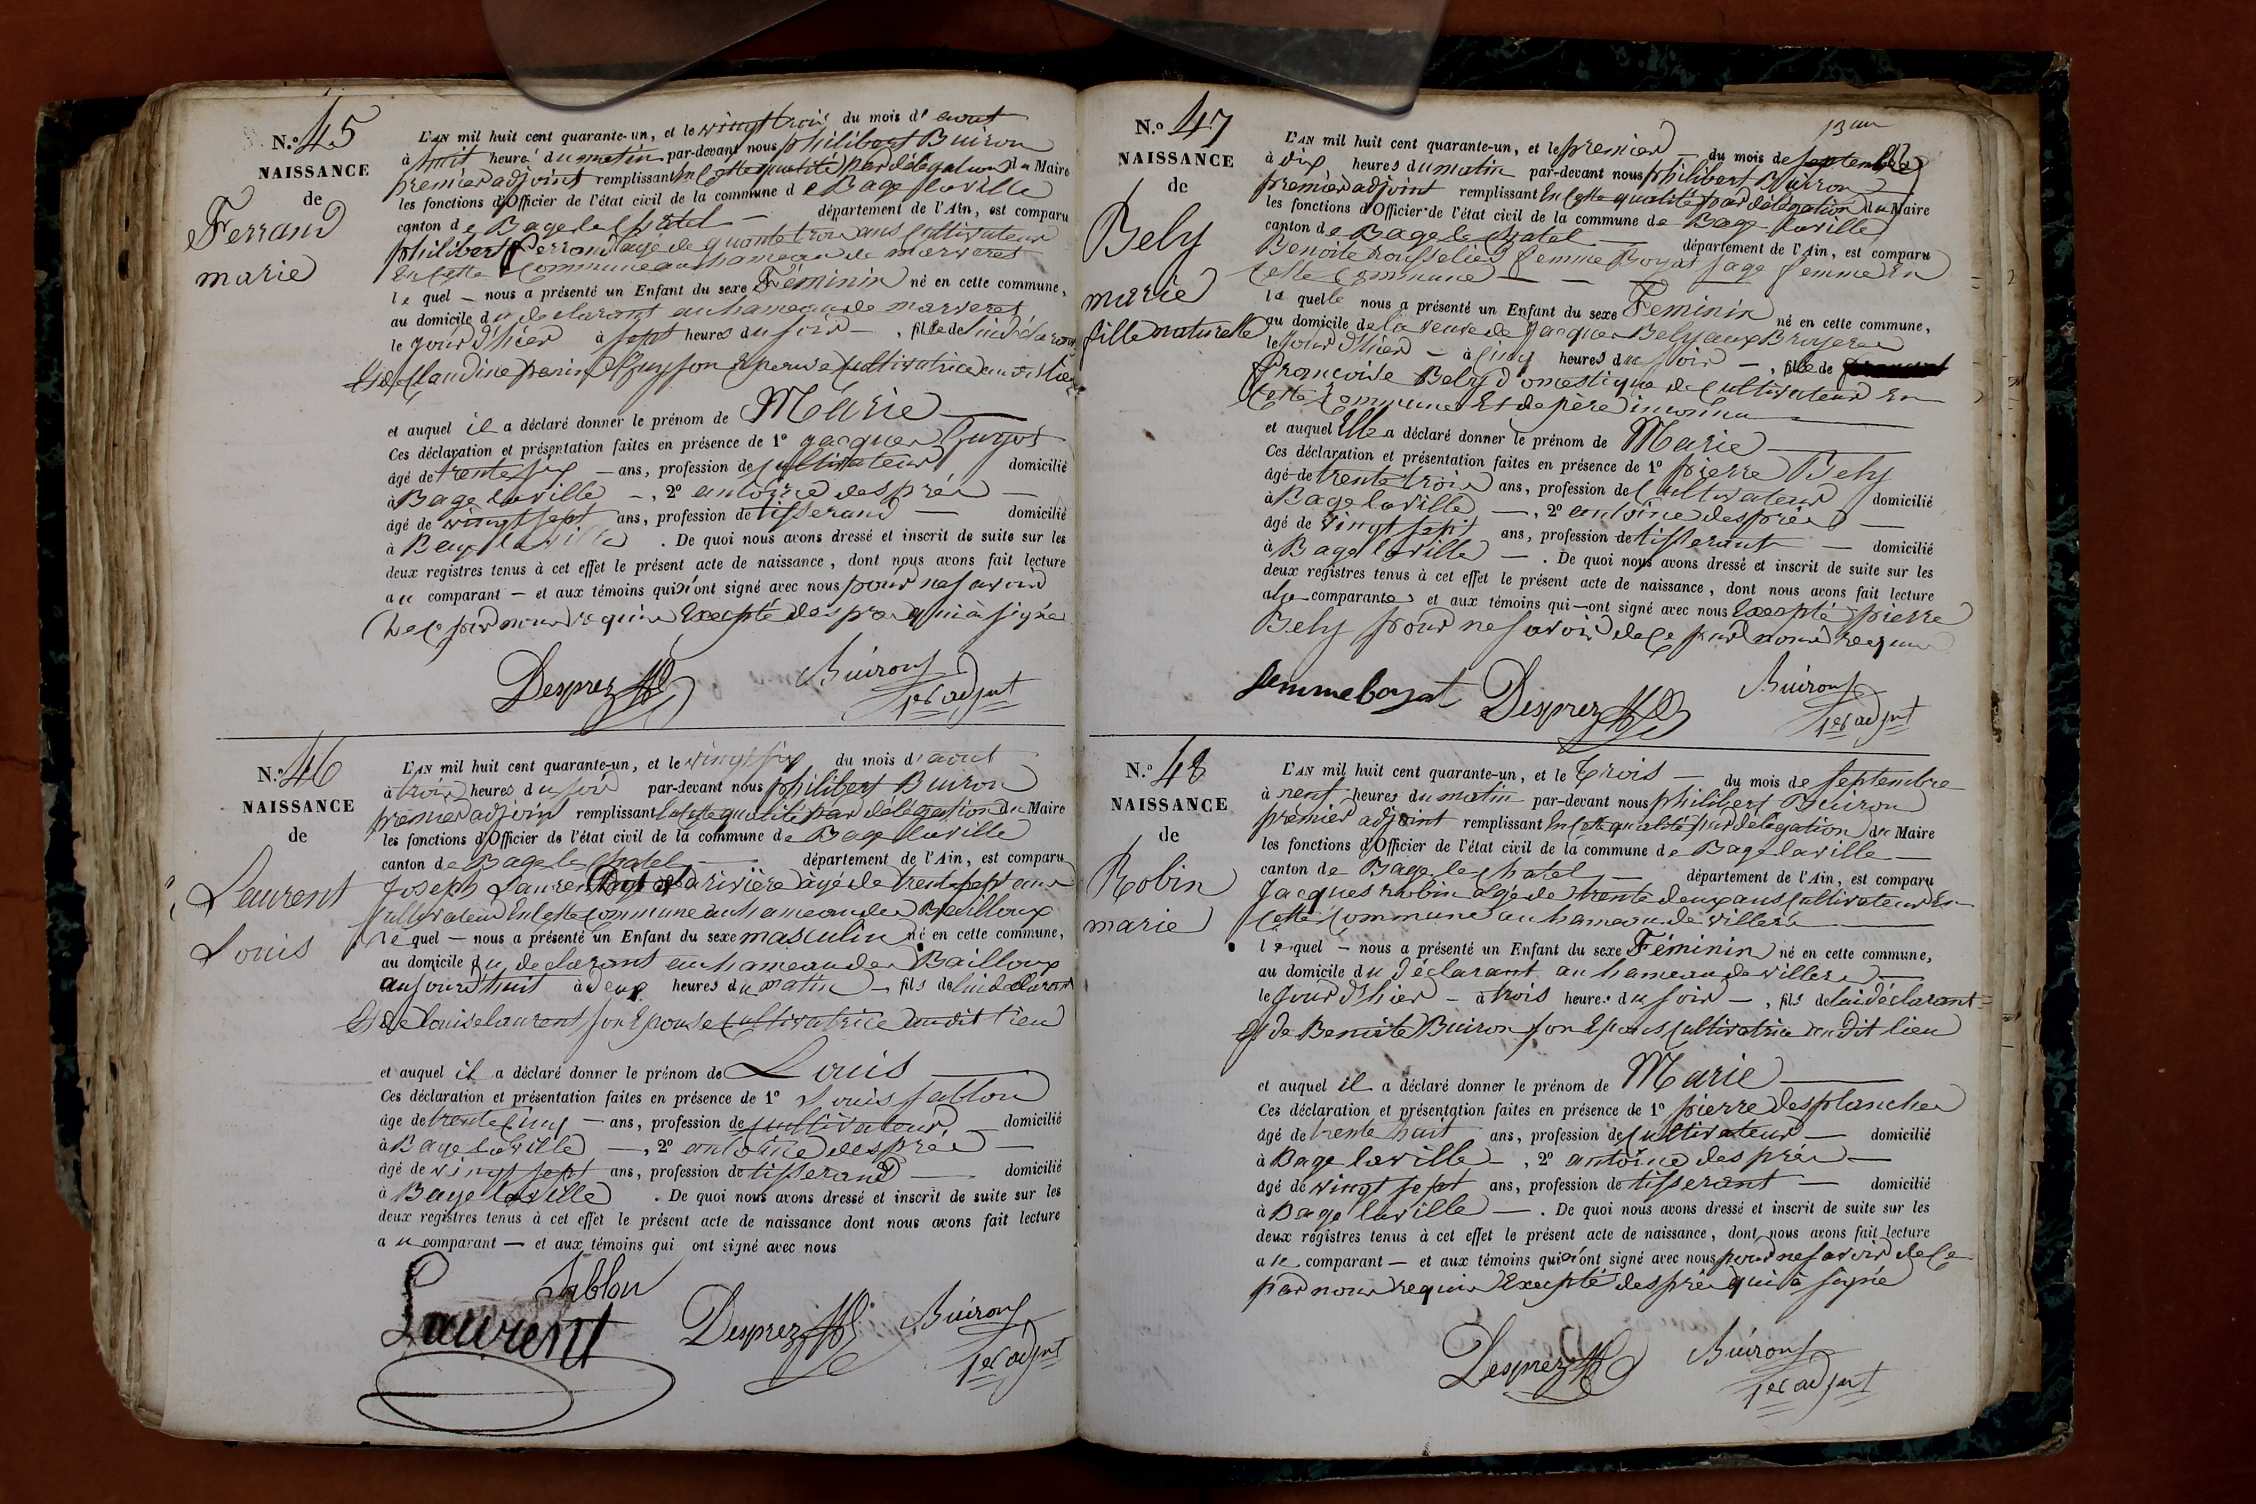 N.º 45
NAISSANCE
de
Ferrand
marie
L'AN mil huit cent quarante-un, et le vingt trois du mois d' aout
à huit heures du matin par-devant nous philibert Buiron
premier adjoint remplissant en cette qualité par délégation du Maire
les fonctions d'Officier de l'état civil de la commune de Bage la ville
canton de Bage le Chatel — département de l'Ain, est comparu
philibert ferrand age de quarante trois ans Cultivateur
en cette Commune au hameau de marveret
le quel — nous a présenté un Enfant du sexe Féminin né en cette commune,
au domicile du declarant au hameau de marveret
le jour d'hier à sept heures du soir — , fille de lui déclarant
Et de Claudine son Epouse Cultivatrice au dit lieu
et auquel il a déclaré donner le prénom de Marie —
Ces déclaration et présentation faites en présence de 1º jacques Guyot
âgé de trente six — ans, profession de Cultivateur domicilié
à Bage la ville — , 2º antoine desprès —
âgé de vingt sept ans, profession de tisserand — domicilié
à Bage la ville . De quoi nous avons dressé et inscrit de suite sur les
deux registres tenus à cet effet le présent acte de naissance, dont nous avons fait lecture
au comparant — et aux témoins qui n'ont signé avec nous pour ne savoir
de ce par nous requis Excepté desprès qui à signé
Desprez Buiron
1er adjnt
N.º 46
NAISSANCE
de
Laurent
Louis
L'AN mil huit cent quarante-un, et le vingt six du mois d'aout
à trois heures du soir par-devant nous philibert Buiron
premier adjoint remplissant en cette qualité par délégation du Maire
les fonctions d'Officier de l'état civil de la commune de Bage la ville
canton de Bage le Chatel — département de l'Ain, est comparu
Joseph Laurent dit la rivière âgé de trente sept ans
Cultivateur En cette Commune au hameau des Bailloux
le quel — nous a présenté un Enfant du sexe masculin né en cette commune,
au domicile du declarant au hameau des Bailloux
aujourd'huit à deux heures du matin — fils de lui declarant
Et de louise laurent son Epouse Cultivatrice au dit lieu
et auquel il a déclaré donner le prénom de Louis —
Ces déclaration et présentation faites en présence de 1º Louis sablon
âgé de trente Cinq — ans, profession de Cultivateur domicilié
à Bage la ville — , 2º antoine desprès —
âgé de vingt sept ans, profession de tisserand — domicilié
à Bage la ville . De quoi nous avons dressé et inscrit de suite sur les
deux registres tenus à cet effet le présent acte de naissance dont nous avons fait lecture
au comparant — et aux témoins qui ont signé avec nous
Sablon
Laurent Desprez Buiron
1er adjnt
N.º 47
NAISSANCE
de
Bely
marie
fille naturelle
L'AN mil huit cent quarante-un, et le premier — du mois de septembre
à dix heures du matin par-devant nous philibert Buiron
premier adjoint remplissant En cette qualité par délégation du Maire
les fonctions d'Officier de l'état civil de la commune de Bage la ville
canton de Bage le Chatel — département de l'Ain, est comparu
Benoite femme Boyat sage femme En
Cette Commune — — —
la quelle nous a présenté un Enfant du sexe Feminin né en cette commune,
au domicile de la veuve de Jacques Bely aux Bruyeres
le jour d'hier — à Cinq heures du soir — , fille de
françoise Bely domestique de Cultivateur En
Cette Commune Et de père inconnu
et auquel Elle a déclaré donner le prénom de Marie —
Ces déclaration et présentation faites en présence de 1º pierre Bely
âgé de trente trois ans, profession de Cultivateur domicilié
à Bage la ville — , 2º antoine desprès —
âgé de vingt sept ans, profession de tisserant — domicilié
à Bage la ville — . De quoi nous avons dressé et inscrit de suite sur les
deux registres tenus à cet effet le présent acte de naissance, dont nous avons fait lecture
a la comparante et aux témoins qui — ont signé avec nous Excepté pierre
Bely pour ne savoir de ce par nous requis
femme boyat Desprez Buiron
1er adjnt
N.º 48
NAISSANCE
de
Robin
marie
L'AN mil huit cent quarante-un, et le trois — du mois de septembre
à neuf heures du matin par-devant nous philibert Buiron
premier adjoint remplissant En cette qualité par délégation du Maire
les fonctions d'Officier de l'état civil de la commune de Bage la ville —
canton de Bage le Chatel — département de l'Ain, est comparu
Jacques robin agé de trente deux ans Cultivateur En
Cette Commune au hameau de villeré
le quel — nous a présenté un Enfant du sexe Féminin né en cette commune,
au domicile du déclarant au hameau de villere —
le jour d'hier — à trois heures du soir — , fils de lui déclarant
Et de Benoite Buiron son Epouse Cultivatrice au dit lieu
et auquel il a déclaré donner le prénom de Marie —
Ces déclaration et présentation faites en présence de 1º pierre desplanches
âgé de trente huit ans, profession de Cultivateur — domicilié
à Bage la ville — , 2º antoine desprès —
âgé de vingt sept ans, profession de tisserant — domicilié
à Bage la ville — . De quoi nous avons dressé et inscrit de suite sur les
deux registres tenus à cet effet le présent acte de naissance, dont nous avons fait lecture
au comparant — et aux témoins qui n'ont signé avec nous pour ne savoir de ce
par nous requis Excepté desprès qui à signé
Desprez Buiron
1er adjnt